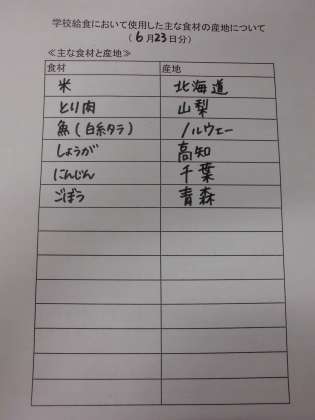 学校給食において使用した主な食材の産地について
（6月23日分）
≪主な食材と産地≫
食材 産地
米 北海道
とり肉 山梨
魚（白糸タラ） ノルウェー
しょうが 高知
にんじん 千葉
ごぼう 青森